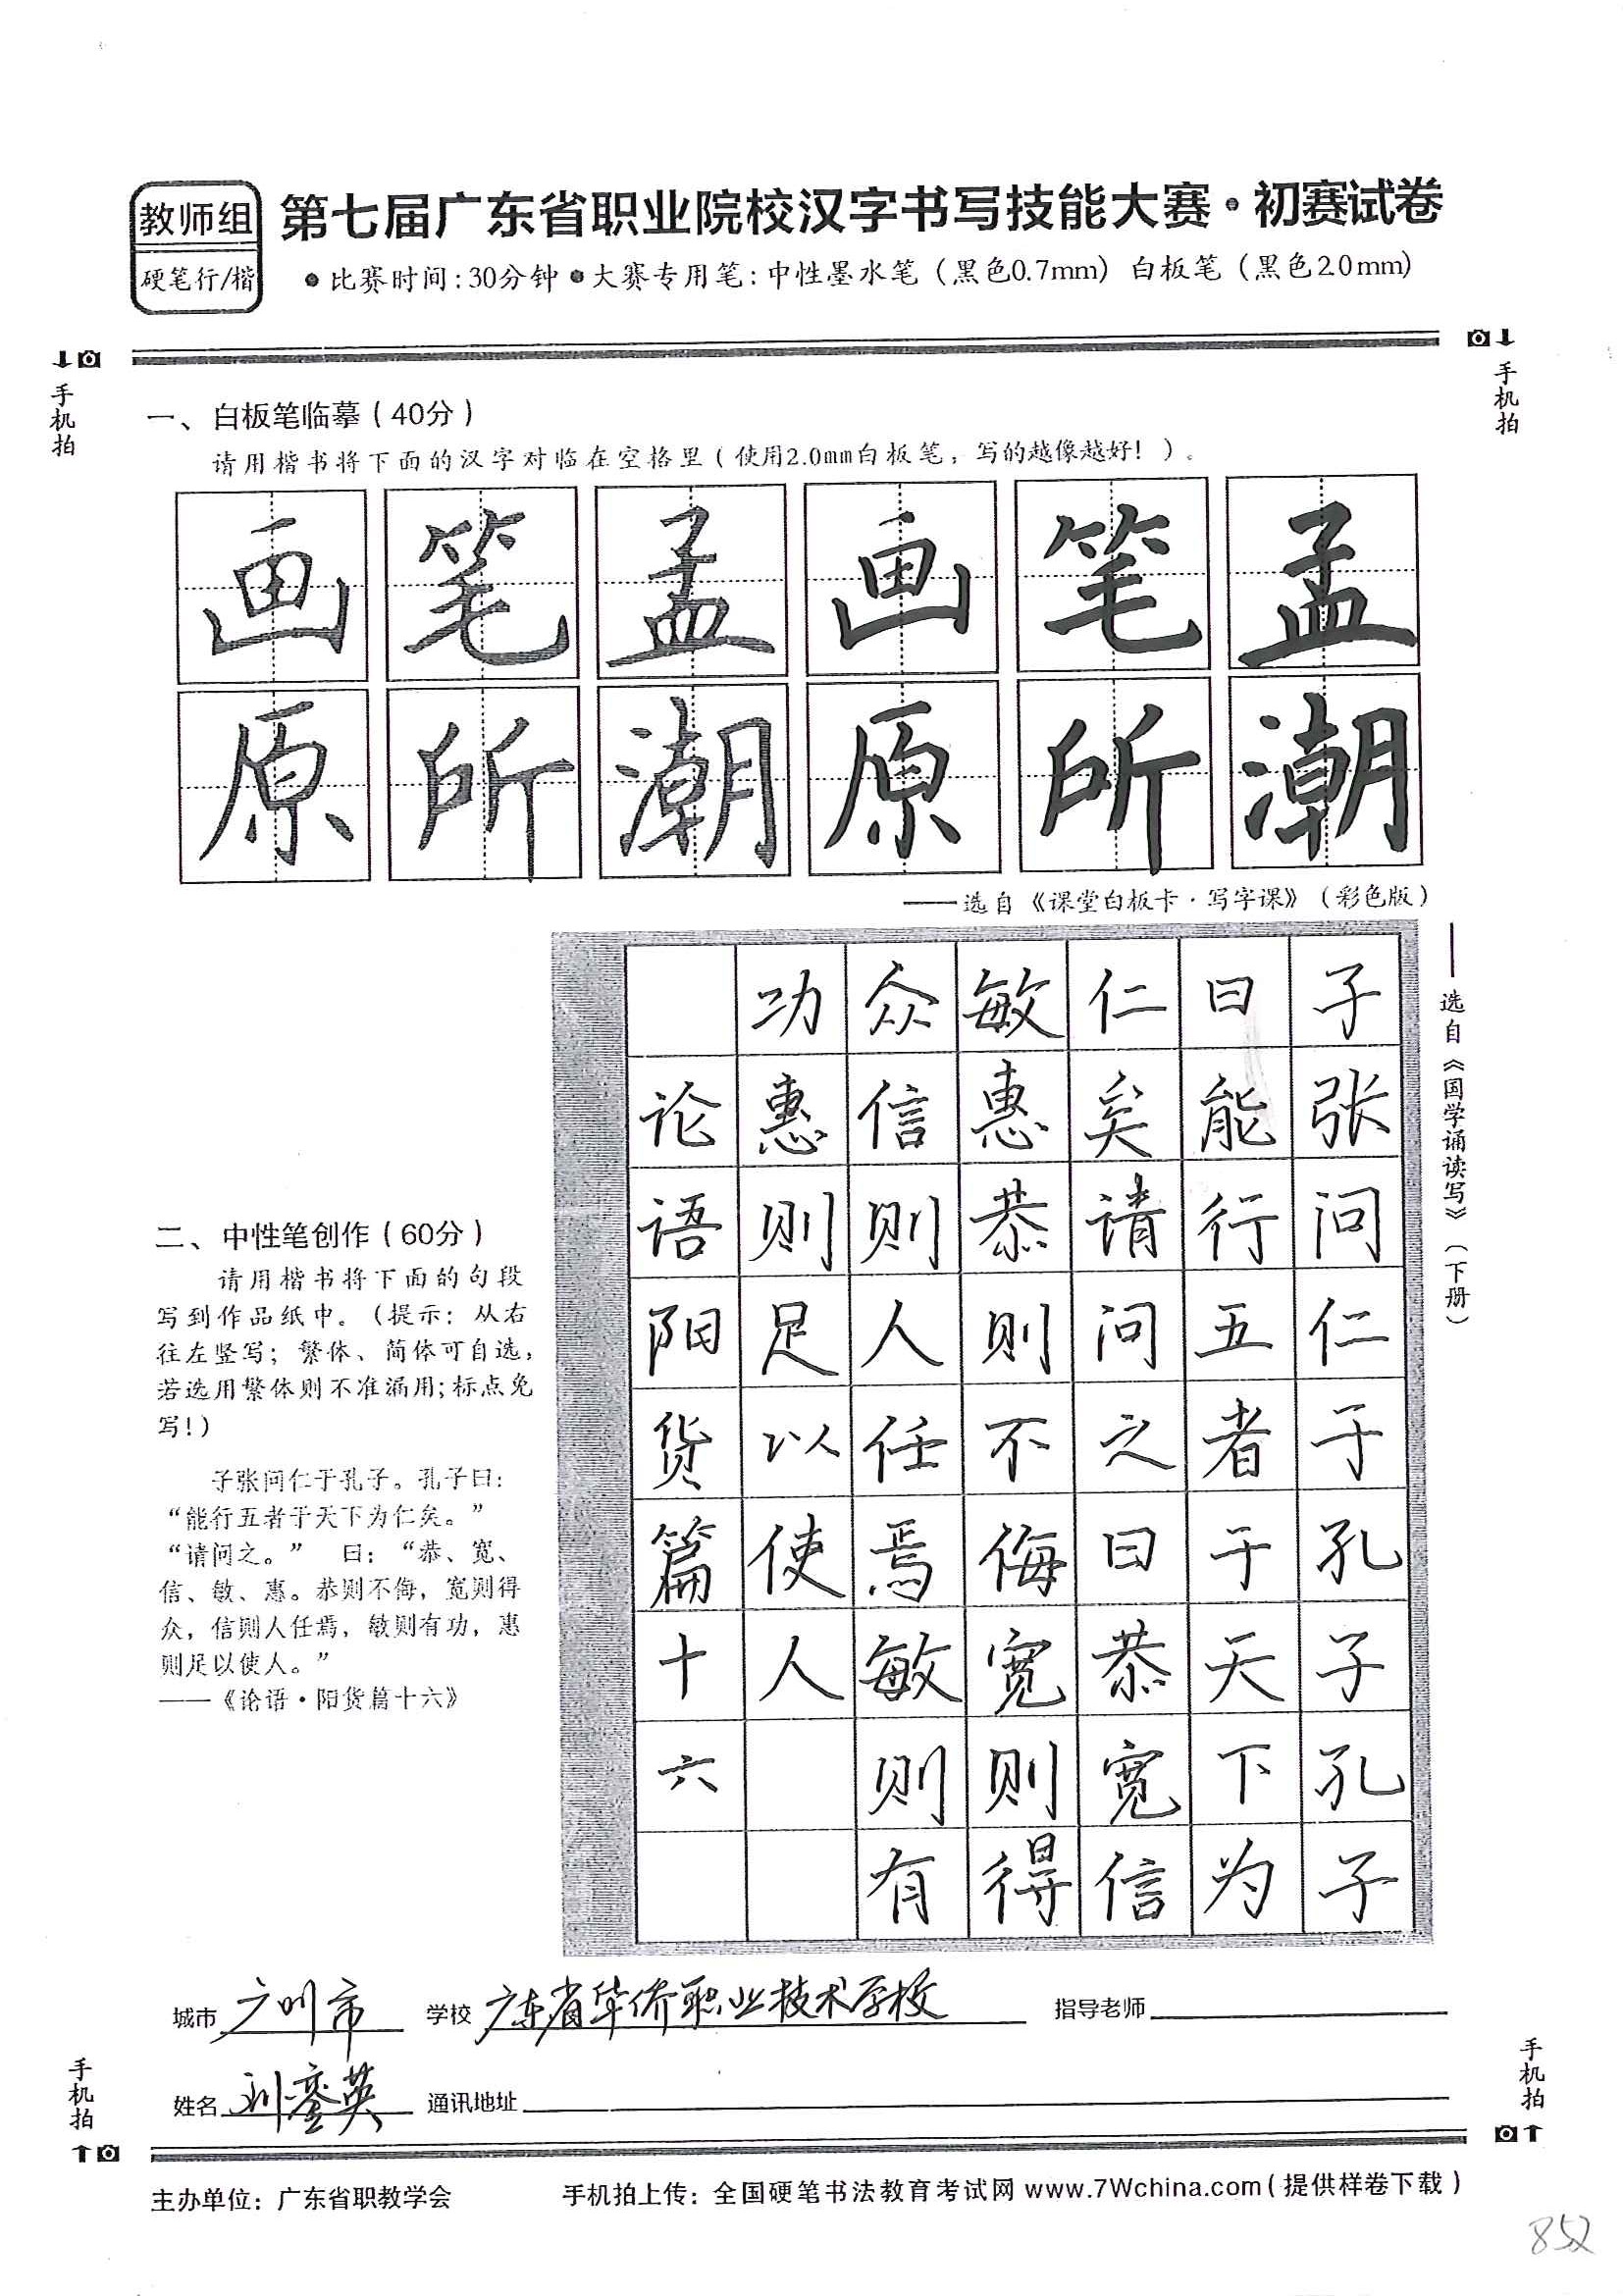 教师组
硬笔行/楷
第七届广东省职业院校汉字书写技能大赛·初赛试卷
●比赛时间:30分钟●大赛专用笔:中性墨水笔(黑色0.7mm) 白板笔(黑色2.0mm)
手机拍
手机拍
一、白板笔临摹(40分)
请用楷书将下面的汉字对临在空格里(使用2.0mm白板笔,写的越像越好!)。
画笔孟画笔孟
原所潮原所潮
——选自《课堂白板卡·写字课》(彩色版)
——选自《国学诵读写》(下册)
二、中性笔创作(60分)
请用楷书将下面的句段
写到作品纸中。(提示:从右
往左竖写;繁体、简体可自选,
若选用繁体则不准漏用;标点免
写!)
子张问仁于孔子。孔子曰:
“能行五者于天下为仁矣。”
“请问之。” 曰:“恭、宽、
信、敏、惠。恭则不侮,宽则得
众,信则人任焉,敏则有功,惠
则足以使人。”
——《论语·阳货篇十六》
子张问仁于孔子孔子
曰能行五者于天下为
仁矣请问之曰恭宽信
敏惠恭则不侮宽则得
众信则人任焉敏则有
功惠则足以使人
论语阳货篇十六
城市 广州市 学校 广东省华侨职业技术学校 指导老师
姓名 刘銮英 通讯地址
手机拍
手机拍
主办单位:广东省职教学会 手机拍上传:全国硬笔书法教育考试网 www.7Wchina.com(提供样卷下载)